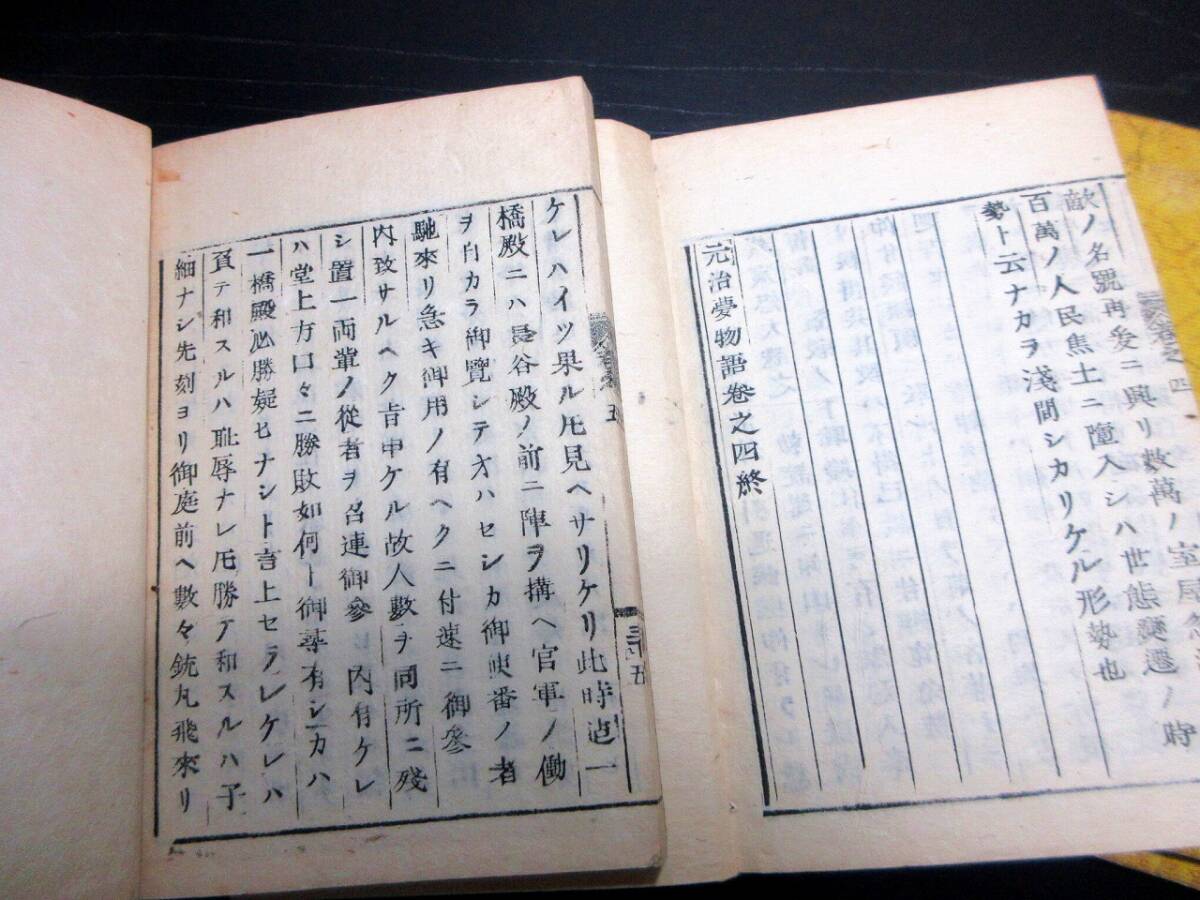 敵ノ名號再爰ニ興リ數萬ノ室屋
百萬ノ人民焦土ニ墮入シハ世態變遷ノ時
勢ト云ナカラ淺間シカリケル形勢也
元治夢物語卷之四終
卷之四
ケレハイツ果ル𪜈見ヘサリケリ此時迠一
橋殿ニハ長谷殿ノ前ニ陣ヲ搆ヘ官軍ノ働
ヲ自カラ御覽シテオハセシカ御使番ノ者
馳來リ急キ御用ノ有ヘクニ付速ニ御參
内致サルヘク旨申ケル故人數ヲ同所ニ殘
シ置一両輩ノ從者ヲ召連御參ヒ内有ケレ
ハ堂上方口々ニ勝敗如何ト御尋有シカハ
一橋殿必勝疑ヒナシト言上セラレケレハ
負テ和スルハ耻辱ナレ𪜈勝テ和スルハ子
細ナシ先刻ヨリ御庭前ヘ數々銃丸飛來リ
五